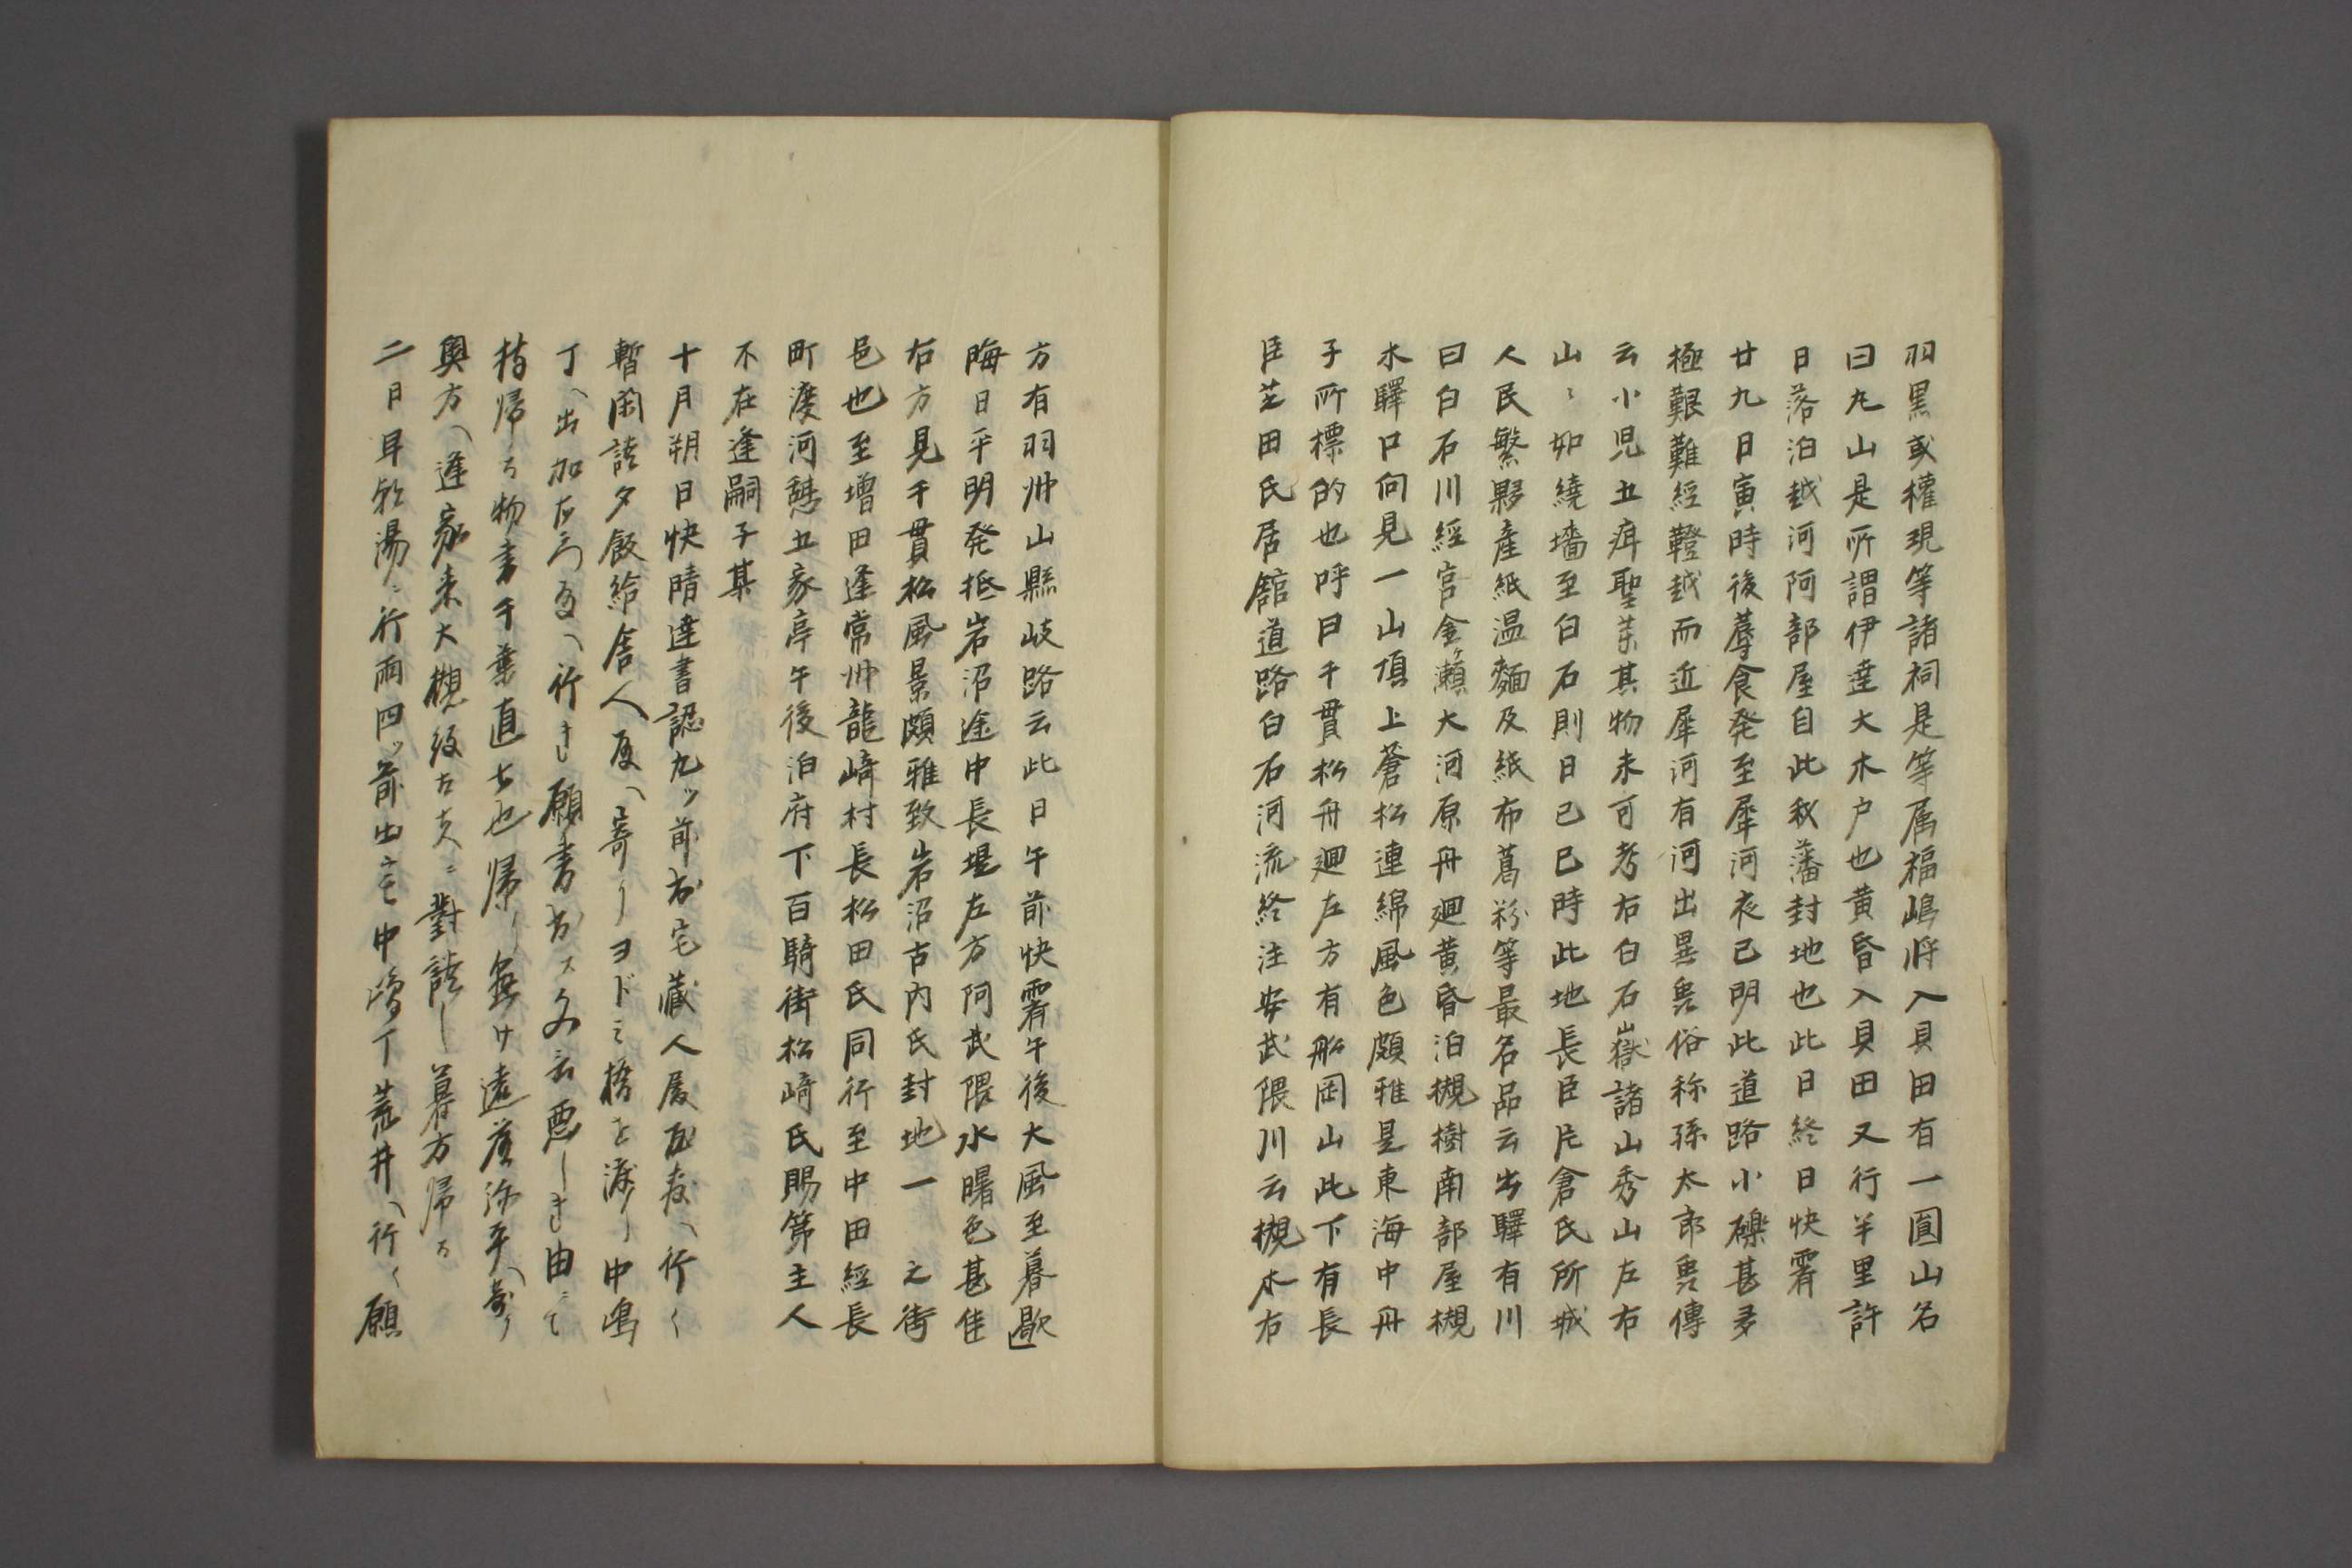 羽黒或權現等諸祠是等属福嶋将入貝田有一圓山名
曰丸山是所謂伊達大木戸也黄昏入貝田又行半里許
日落泊越河阿部屋自此我藩封地也此日終日快霽
廿九日寅時後蓐食発至犀河夜已明此道路小礫甚多
極艱難經鐙越而近犀河有河出異魚俗称孫太郎魚傳
云小児五疳聖薬其物未可考右白石嶽諸山秀山左右
山ミ如繞墻至白石則日已巳時此地長臣片倉氏所城
人民繁夥産紙温麺及紙布葛粉等最名品云出驛有川
曰白石川經宮金ヶ瀬大河原舟廻黄昏泊槻樹南部屋槻
木驛口向見一山頂上蒼松連綿風色頗雅是東海中舟
子所標的也呼曰千貫松舟廻左方有船岡山此下有長
臣芝田氏居館道路白石河流終注安武隈川云槻木右
方有羽州山縣岐路云此日午前快霽午後大風至暮歇
晦日平明発抵岩沼途中長堤左方阿武隈水曙色甚佳
右方見千貫松風景頗雅致岩沼古内氏封地一 之街
邑也至増田逢常州龍崎村長松田氏同行至中田經長
町渡河憩五家亭午後泊府下百騎街松崎氏賜第主人
不在逢嗣子某
十月朔日快晴達書認九ッ前出宅蔵人殿 行く
暫閑話夕飯給舎人殿へ寄りヨドミ橋を渡り中嶋
丁へ出 行き願書 云悪しき由ニて
持帰る物書千葉直七也帰り 遠産弥平へ寄り
奥方へ逢家来大槻 對話し暮方帰る
二日早飯湯ニ行雨四ッ前出宅中嶋丁荒井へ行く願